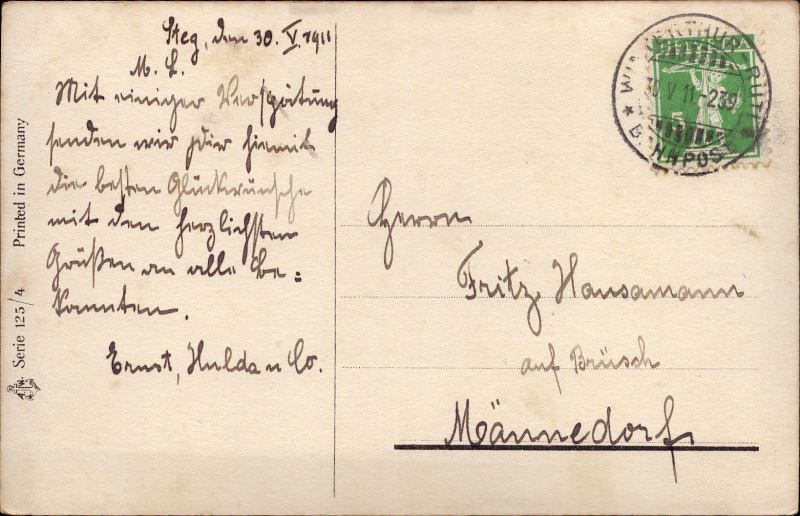 Steg, den 30. V. 1911
M. L.
Mit einiger Verspätung
senden wir Dir hiemit
die besten Glückwünsche
mit den herzlichsten
Grüßen an alle Be=
kannten.
Ernst, Hulda u Co.
Herrn
Fritz Hansamann
auf Brüsch
Männedorf
WINTERTHUR-RÜTI
30.V.11.-239
BAHNPOST
5
Serie 125/4 Printed in Germany